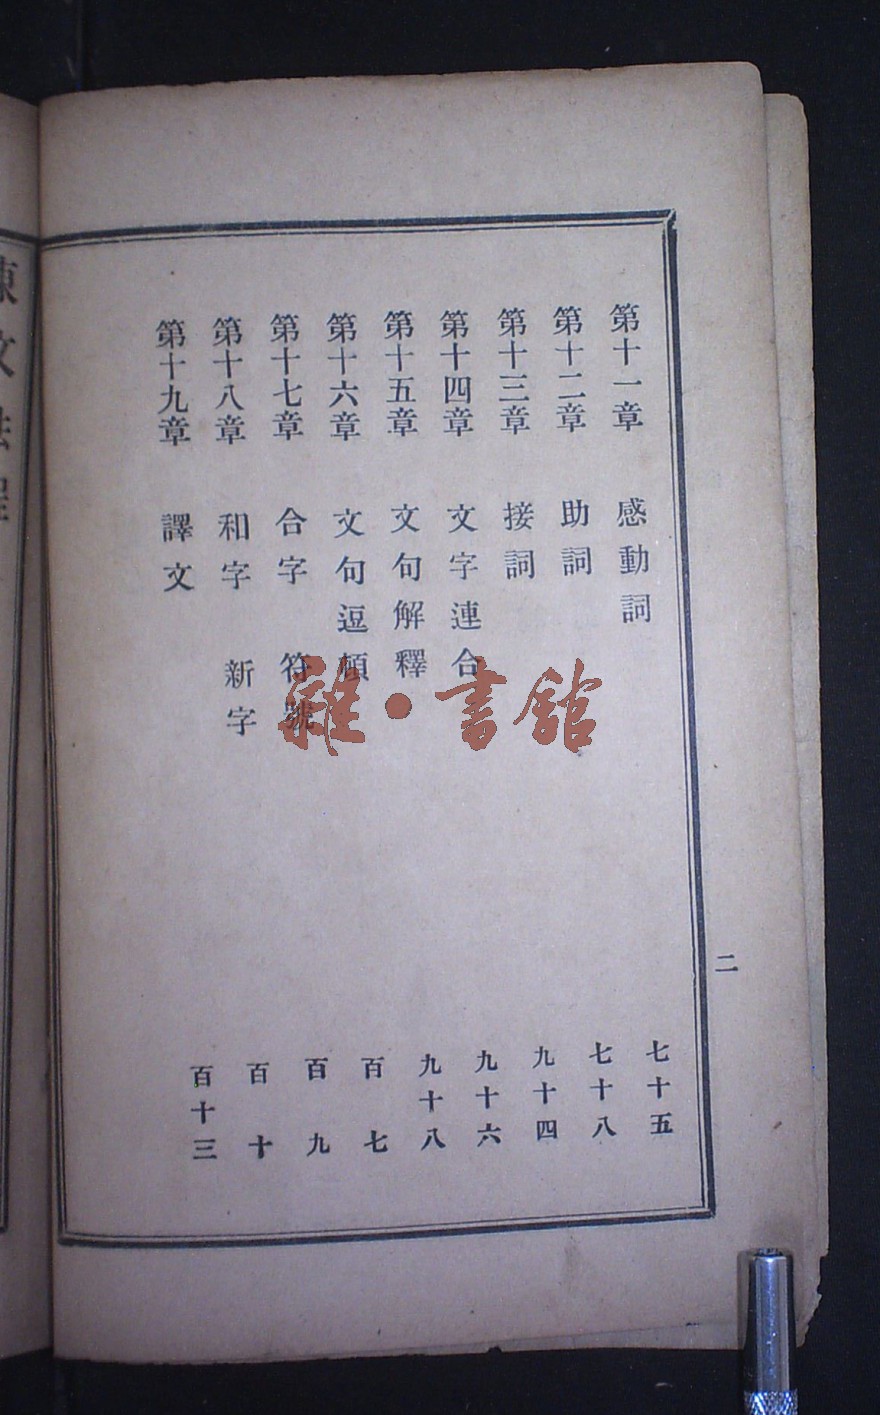 第十一章 感動詞 七十五
第十二章 助詞 七十八
第十三章 接詞 九十四
第十四章 文字連合 九十六
第十五章 文句解釋 九十八
第十六章 文句逗頓 百七
第十七章 合字 符號 百九
第十八章 和字 新字 百十
第十九章 譯文 百十三
二
雜·書館
文法